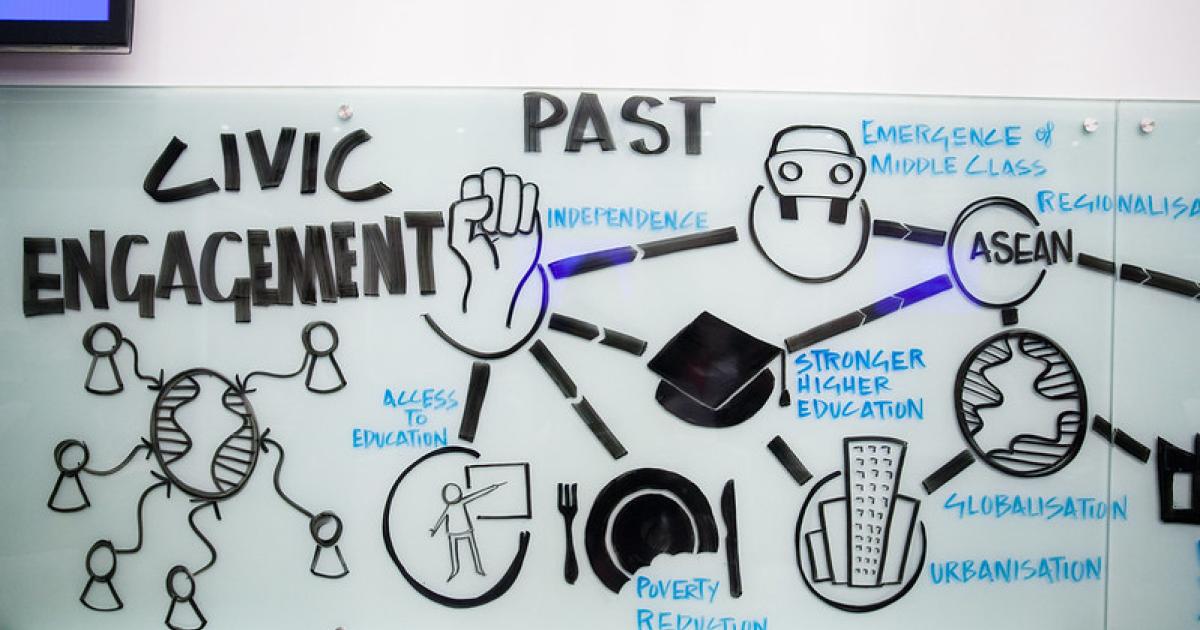 PAST
CIVIC
ENGAGEMENT
INDEPENDENCE
EMERGENCE of
MIDDLE CLASS
REGIONALISA
ASEAN
STRONGER
HIGHER
EDUCATION
ACCESS
TO
EDUCATION
GLOBALISATION
URBANISATION
POVERTY
REDUCTION